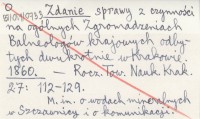 O
Zdanie sprawy z czynności
na ogólnych Zgromadzeniach
Balneologów krajowych odby-
tych dwukrotnie w Krakowie
1860. — Rocz. Tow. Nauk. Krak.
27: 112-129.
M. in. o wodach mineralnych
w Szczawnicy i o komunikacji.